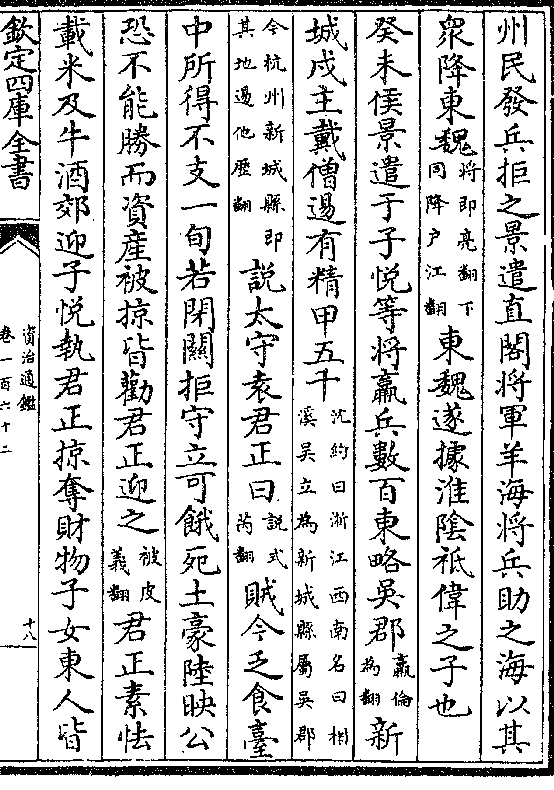 州民發兵拒之景遣直閤將軍羊海將兵助之海以其
衆降東魏將即亮翻下同降户江翻東魏遂據淮隂祗偉之子也
癸未侯景遣于子悦等將羸兵數百東略吳郡羸倫為翻新
城戍主戴僧逷有精甲五千沈約曰浙江西南名曰相溪吳立為新城縣屬吳郡
今杭州新城縣即其地逷他歷翻說太守袁君正曰說式芮翻賊今乏食臺
中所得不支一旬若閉關拒守立可餓死土豪陸映公
恐不能勝而資産被掠皆勸君正迎之被皮義翻君正素怯
載米及牛酒郊迎子悦執君正掠奪財物子女東人皆
欽定四庫全書
資治通鑑
卷一百六十二
十八